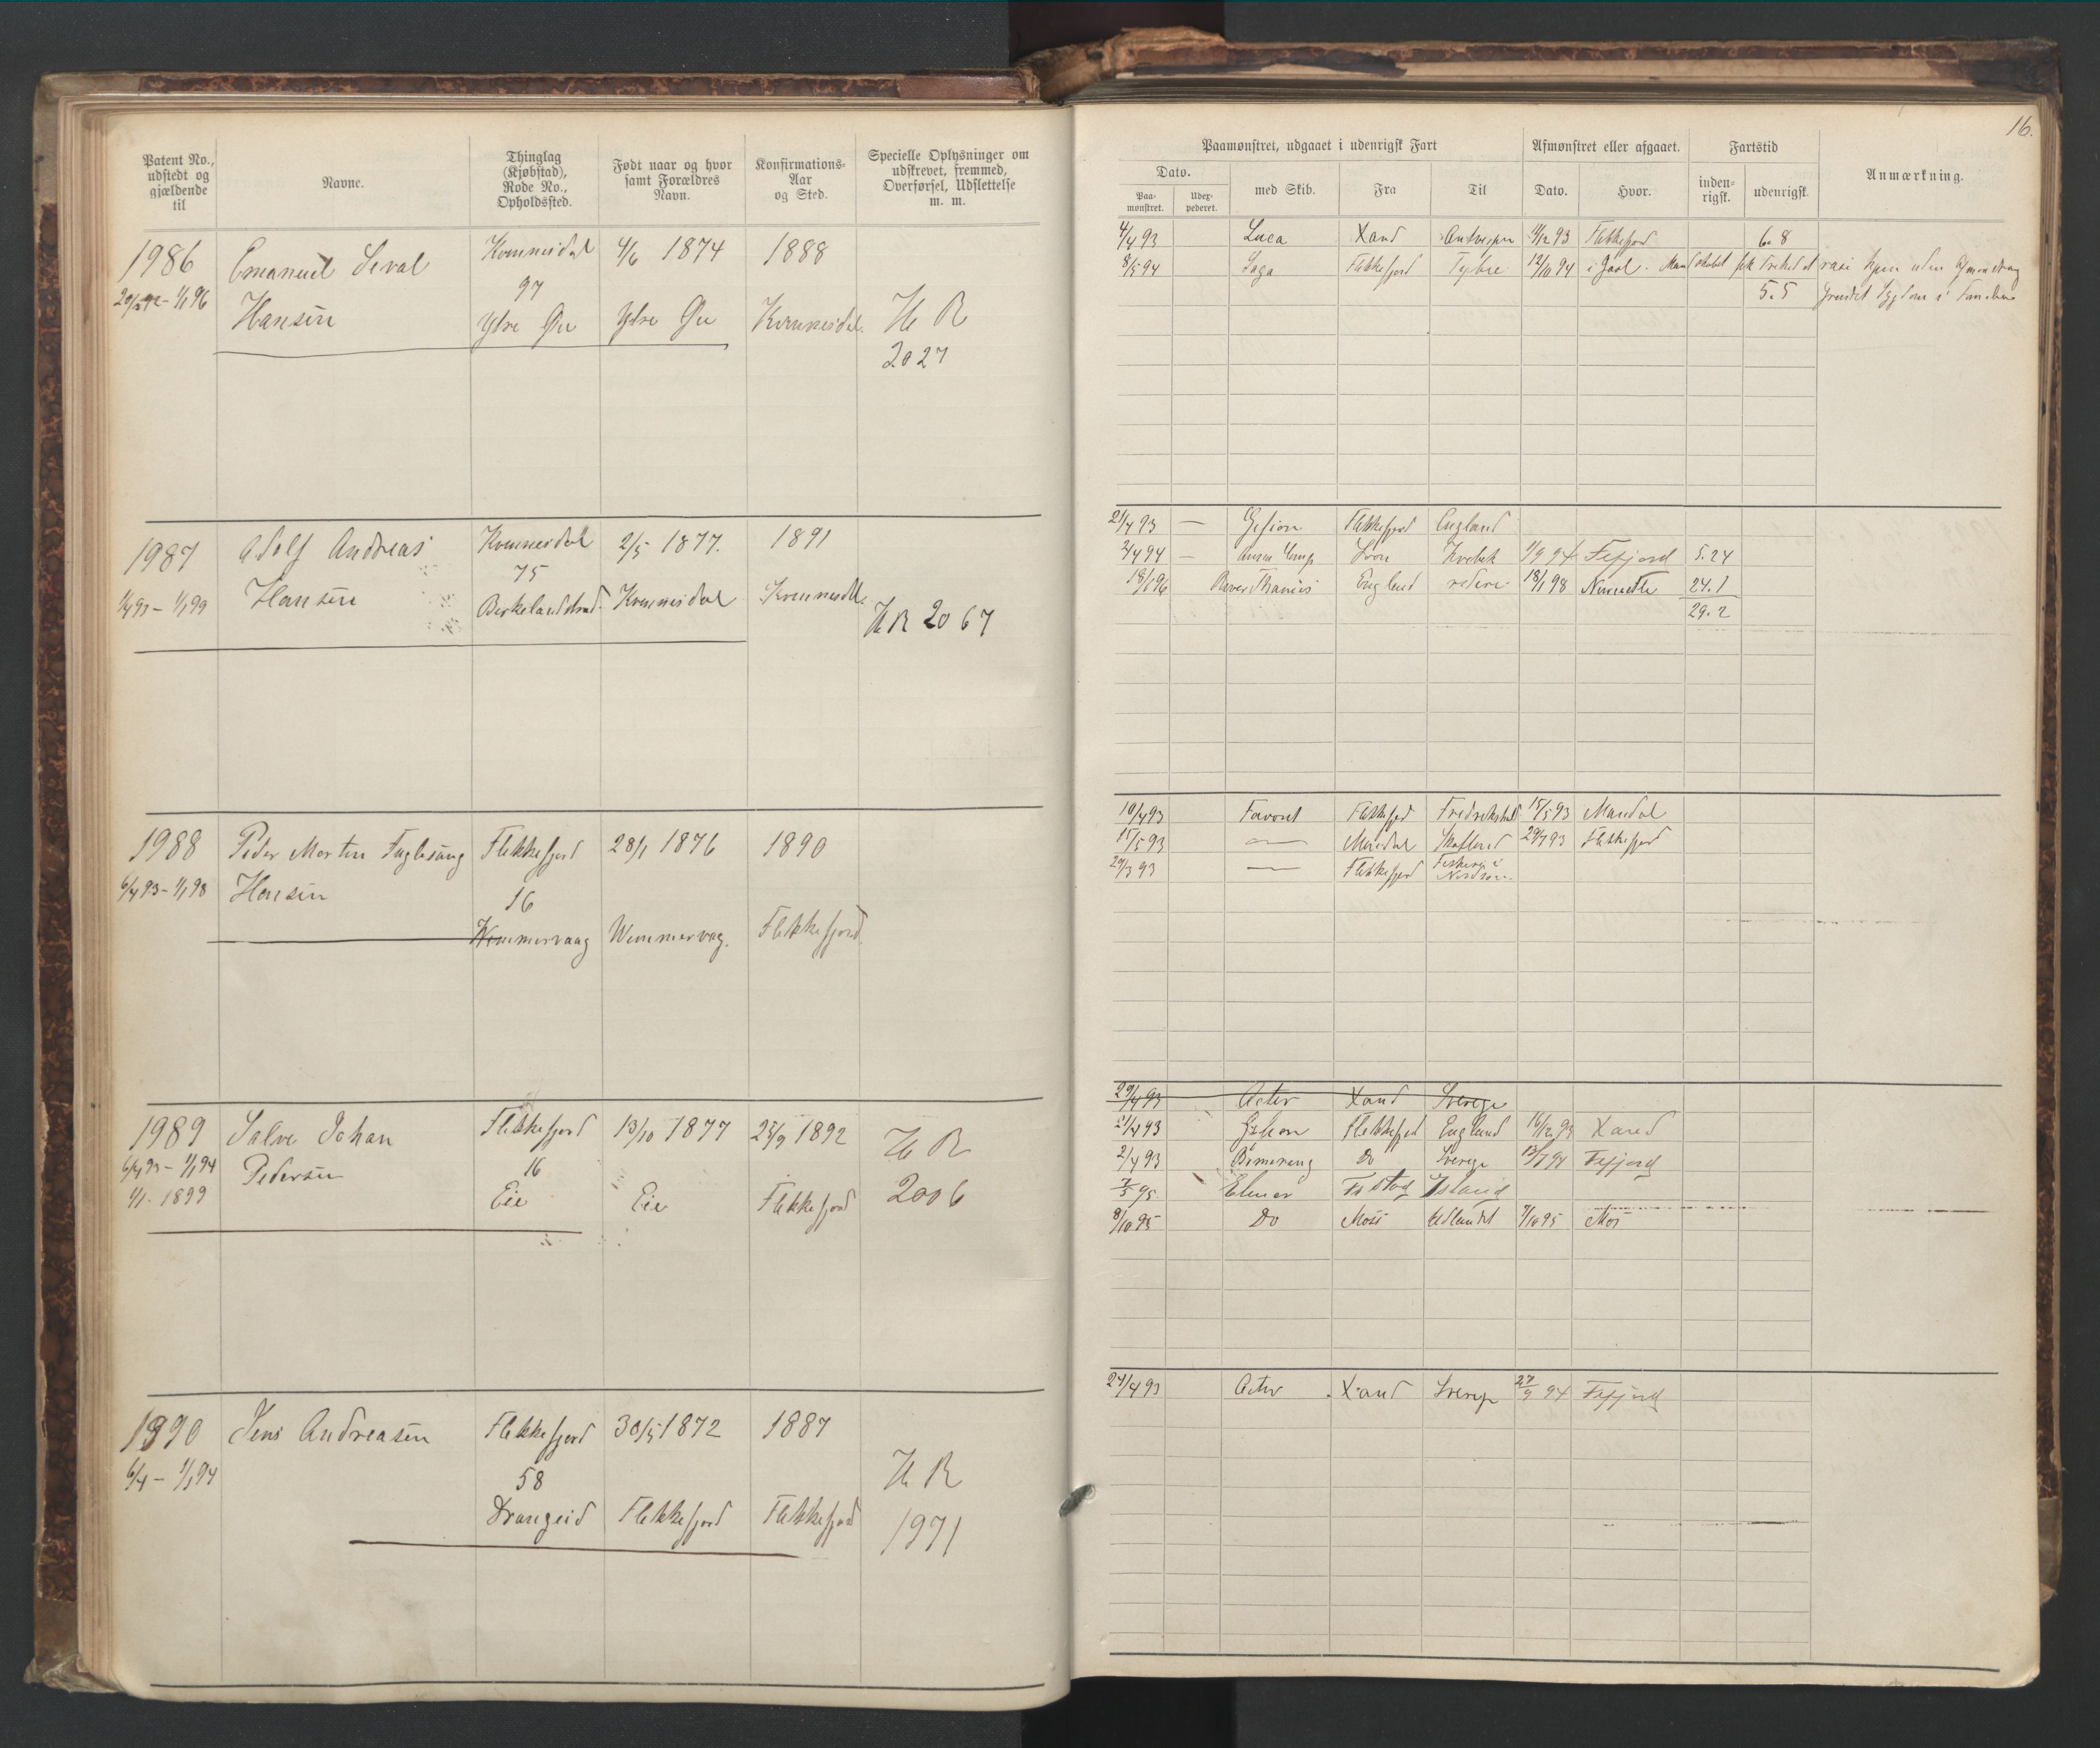 16.
Patent No., udstedt og gjældende til
Navne.
Thinglag (Kjøbstad), Rode No., Opholdssted.
Født naar og hvor samt Forældres Navn.
Konfirmations-Aar og Sted.
Specielle Oplysninger om udskrevet, fremmed, Overførsel, Udslettelse m. m.
Paamønstret, udgaaet i udenrigsk Fart
Afmønstret eller afgaaet.
Fartstid
Anmærkning.
Dato.
Paamønstret.
Udexpederet.
med Skib.
Fra
Til
Dato.
Hvor.
indenrigsk.
udenrigsk.
1986 Emanuel Seval Kvinnesdal 4/6 1874 1888
97
Hansen Ytre Øie Ytre Øie Kvinnesdal. H R
2027
4/4 93 Luca Xand Antverpen 4/12 93 Flekkefjord 6.8
8/5 94 Saga Flekkefjord Tybee 12/10 94 i Gavl. Mandskabet fik
5.5
1987 Adolf Andreas Kvinnesdal 2/5 1877. 1891
75
1/4 93 – 1/1 99 Hansen Birkelandstrand. Kvinnesdal Kvinnesdl. H R 2067
21/4 93 — Gefion Flekkefjord England
2/4 94 — Kvebek 1/9 94 Fefjord 5.24
18/1 96 England 18/1 98 24.1
29.2
1988 Peder Morten Fuglesang Flekkefjord 28/1 1876 1890
6/4 93 – 1/1 98 Hansen 16
Wimmervaag Wimmervag. Flekkefjord.
10/4 93 Favorit Flekkefjord Fredrikshald 15/5 93 Mandal
15/5 93 — Mandal 29/7 93 Flekkefjord
29/3 93 — Flekkefjord Fiskeri i Nordsøen.
1989 Salve Johan Flekkefjord 13/10 1877 25/9 1892 H R
6/4 93 – 1/1 94 Pedersen 16
1/1. 1899 Eie Eie Flekkefjord 2006
29/4 93 Activ Xand Sverige
21/4 93 Gefion Flekkefjord England 16/12 93 Xand
2/4 93 Bomerang Do Sverige Fefjord
7/5 95 Elmer Island
8/10 95 Do Moss Udlandet 9/10 95 Mos
1990 Jens Andreasen Flekkefjord 30/5 1872 1887
6/4 – 1/1 94 58 H R
Drangeid Flekkefjord Flekkefjord 1971
27/4 93 Activ Xand Sverige 27/9 94 Fefjord